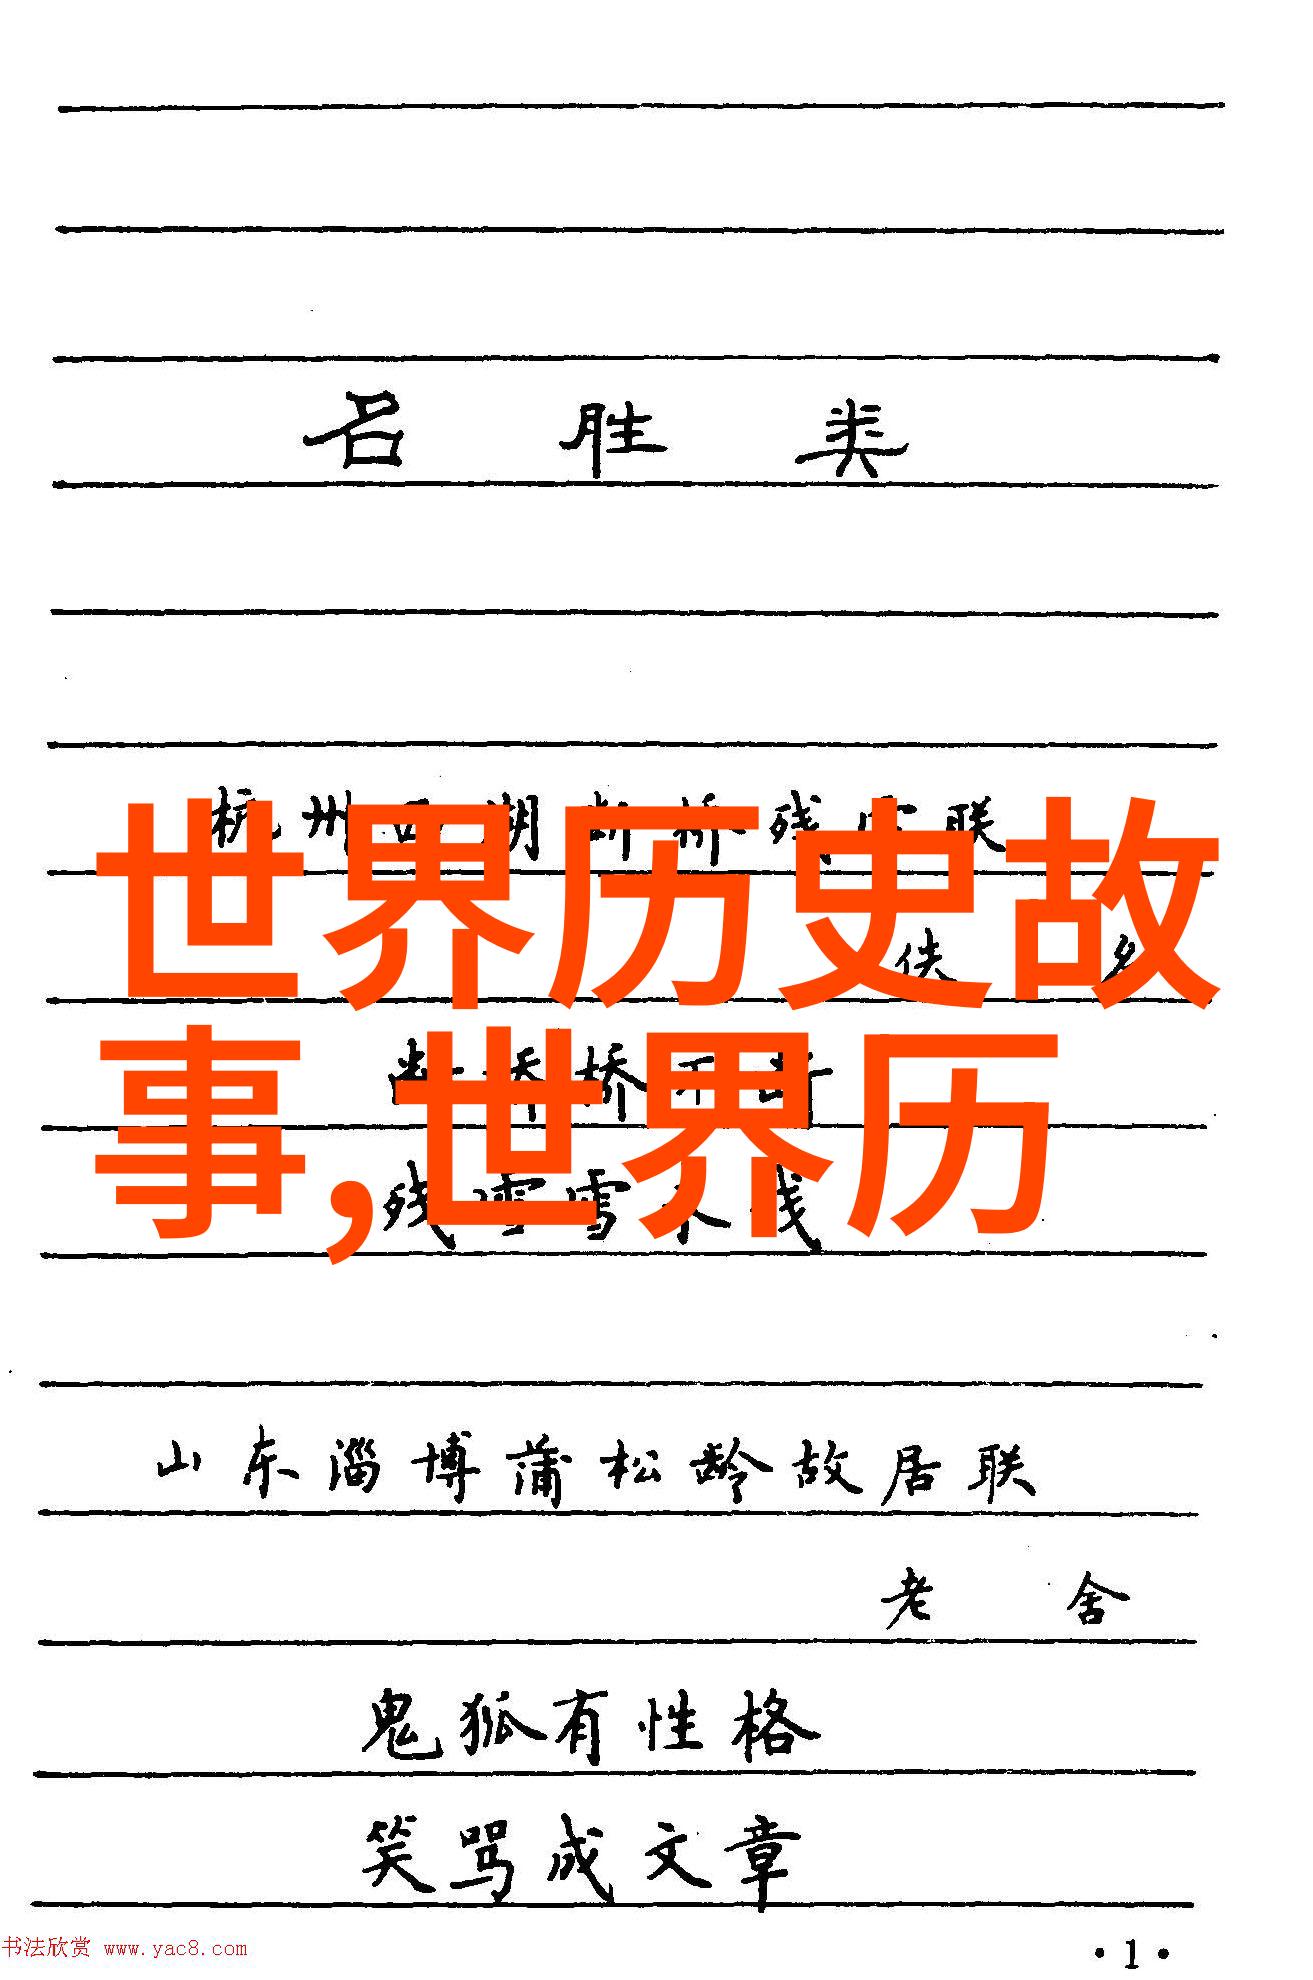 名胜类
杭州西湖断桥残雪联
佚名
断桥桥不断
残雪雪未残
世界历史故
事,世界历
山东淄博蒲松龄故居联
老舍
鬼狐有性格
笑骂成文章
书法欣赏 www.yac8.com
·1·